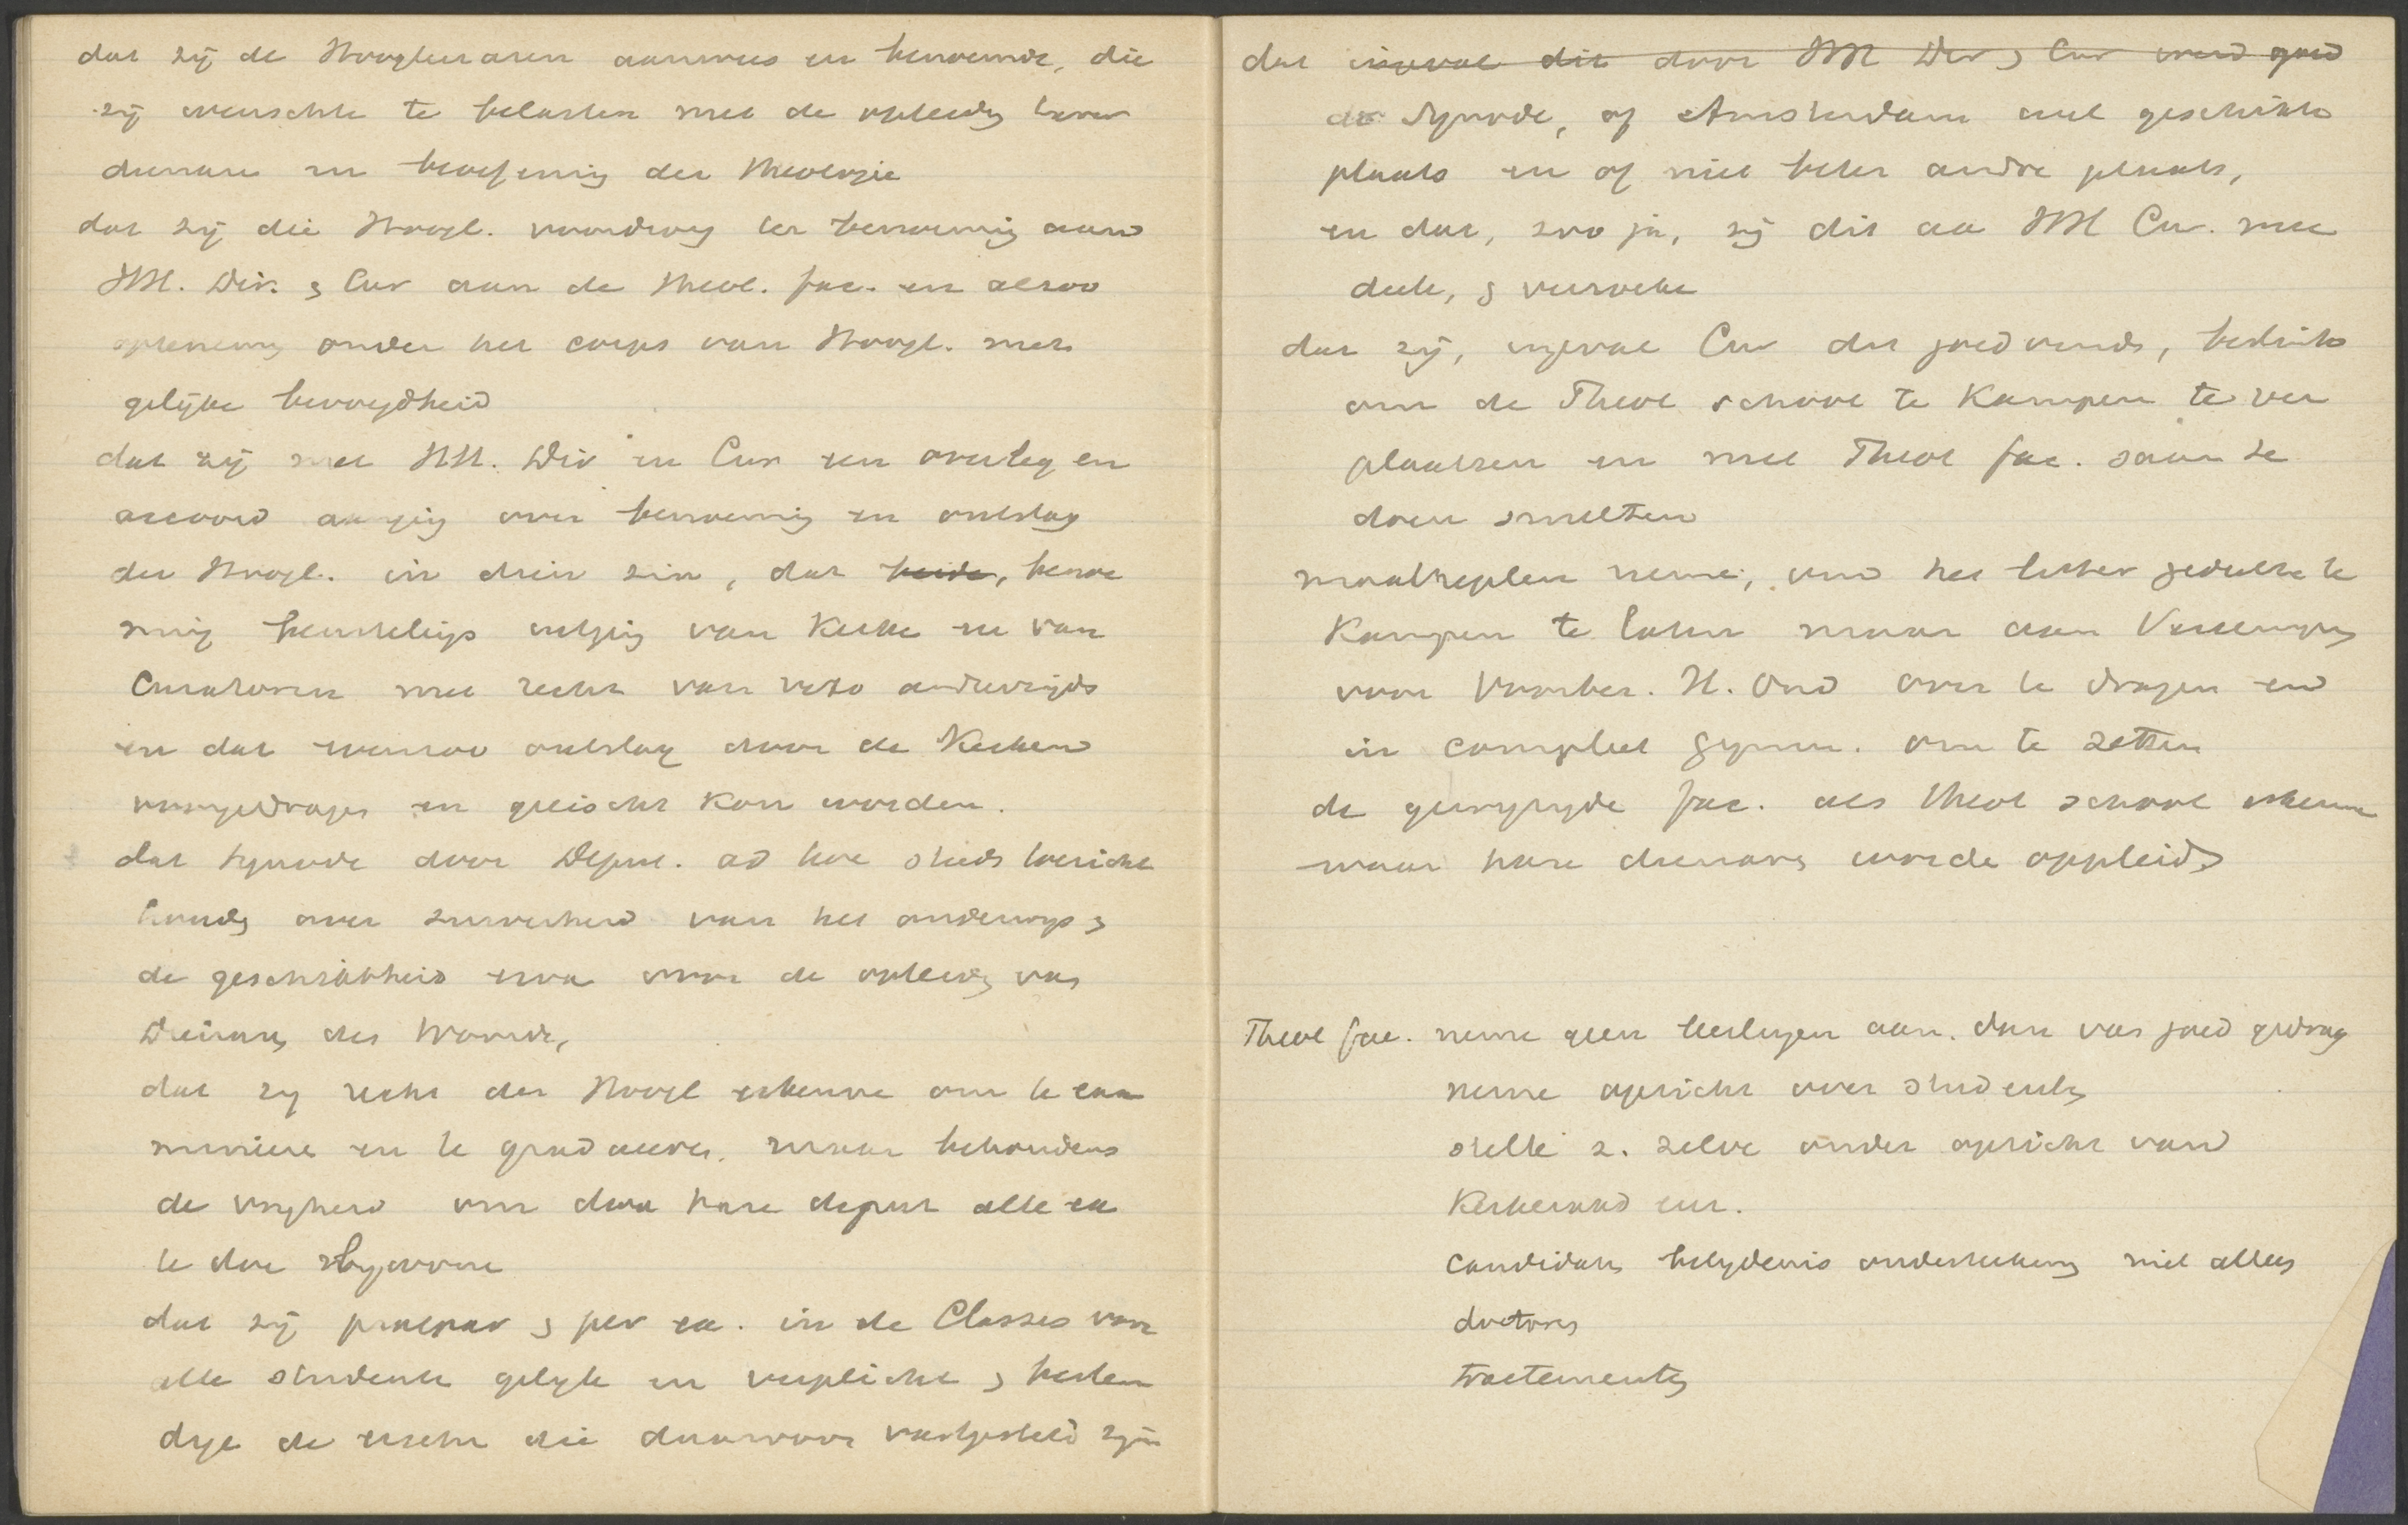 dat zij de Hoogleeraren aanwees en benoemde, die
zij wenschte te belasten met de opleidg harer
dienaren en beoefening der Theologie
dat zij die Hoogl. voordroeg ter benoeming aan
HH. Dir. & Cur aan de theol. fac. en alzoo
opneming onder het corps van Hoogl. met
gelijke bevoegdheid
dat zij met HH. Dir en Cur een overleg en
accoord aanging over benoeming en ontslag
der Hoogl. in dien zin, dat beide, benoe
ming van Kerke en van
Curatoren met recht van veto anderzijds
en dat evenzoo ontslag door de Kerken
voorgedragen en geëischt kon worden.
dat Synode door Deput. ad hoc steeds toezicht
houdg over zuiverheid van het onderwijs &
de geschiktheid erva voor de opleidg van
Dienars des Woords,
dat zij recht der Hoogl erkenne om te exa
mineren en te gradueeren, maar behoudens
de vrijheid om door hare deput alle ex
te doe bijwone
dat zij praepar & per ex. in de Classes voor
alle studente gelijk en verplicht &
de eischen die daarvoor vastgesteld zijn
dat ingeval dit door HH Dir & Cur werd goed
de Synode, of Amsterdam wel geschikte
plaats en of niet beter andre plaats,
en dat, zoo ja, zij dit aa HH Cur. mee
deele, & verzoeke
dat zij, ingeval Cur dit goedvinds, besluite
om de Theol school te Kampen te ver
plaatsen en met Theol fac. saam te
doen smelten
maatregelen neme, om het litter gedeelte te
Kampen te laten maar aan Vereenigg
voor Voorber. H. Ond over te dragen en
in compleet gymn. om te zetten
de gewijzigde fac. als theol school erkenne
waar hare dienars worde opgeleid
Theol fac. neme geen leerlingen aan. dan van goed gedrag
neme opzicht over studentg
stelle z. zelve onder opzicht van
Kerkeraad enz.
Candidate belydenis onderteekeng niet alleen
doctores
tractementg